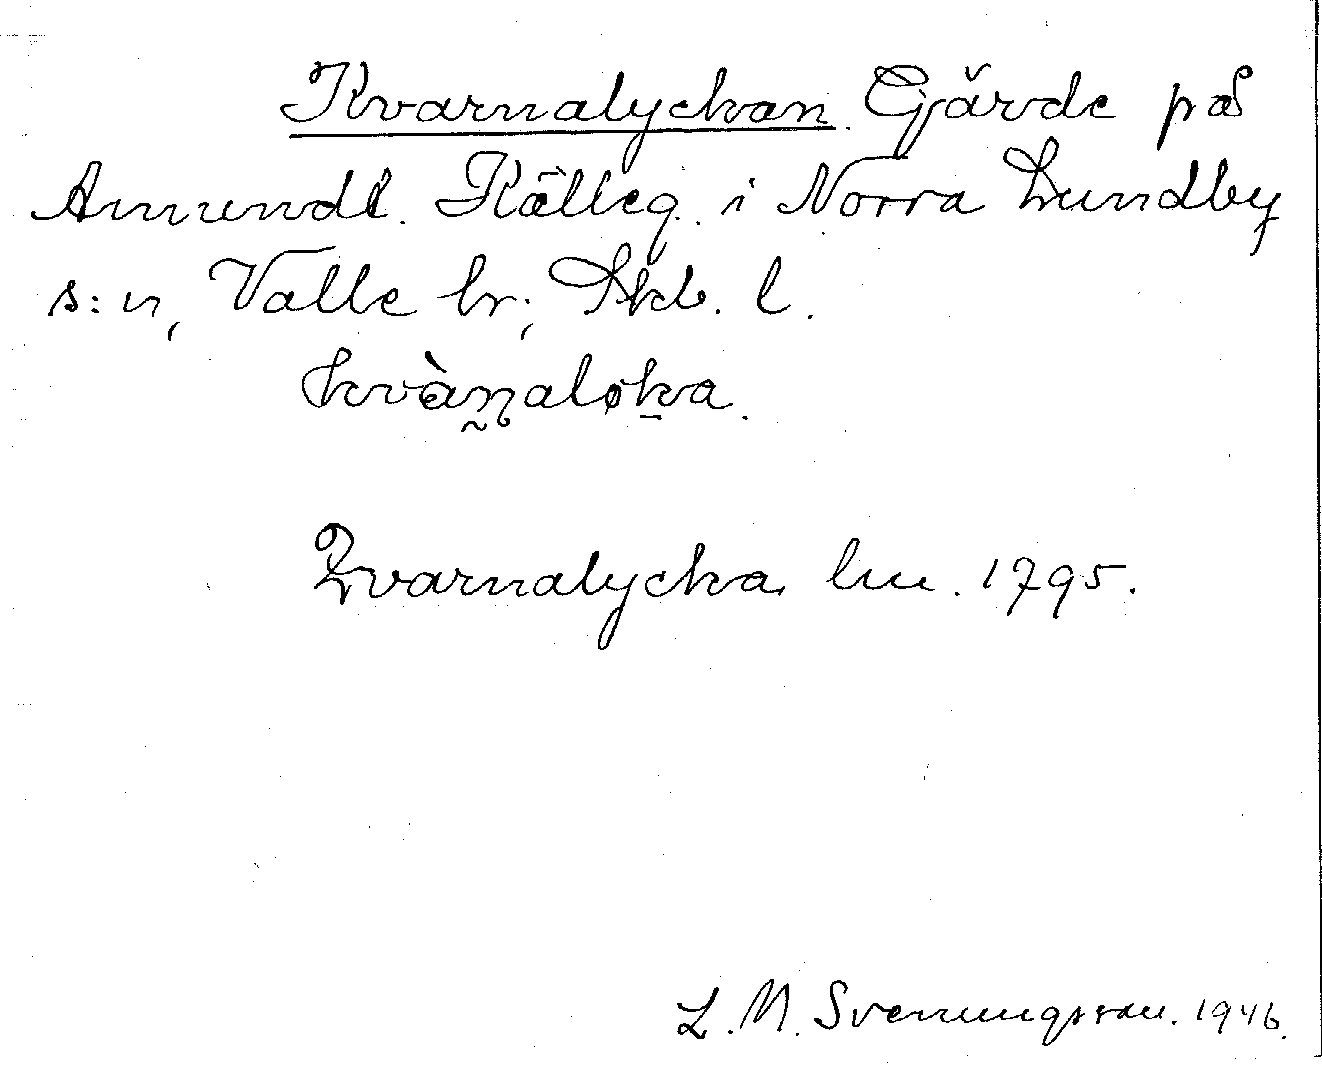 Kvarnalyckan. Gjärde på
Amundt. Källeg. i Norra Lundby
s:n, Valle hr; Skb. l.
kvàṉaløḵa.
Qvarnalycka lm. 1795.
L. M. Svenungsson. 1946.